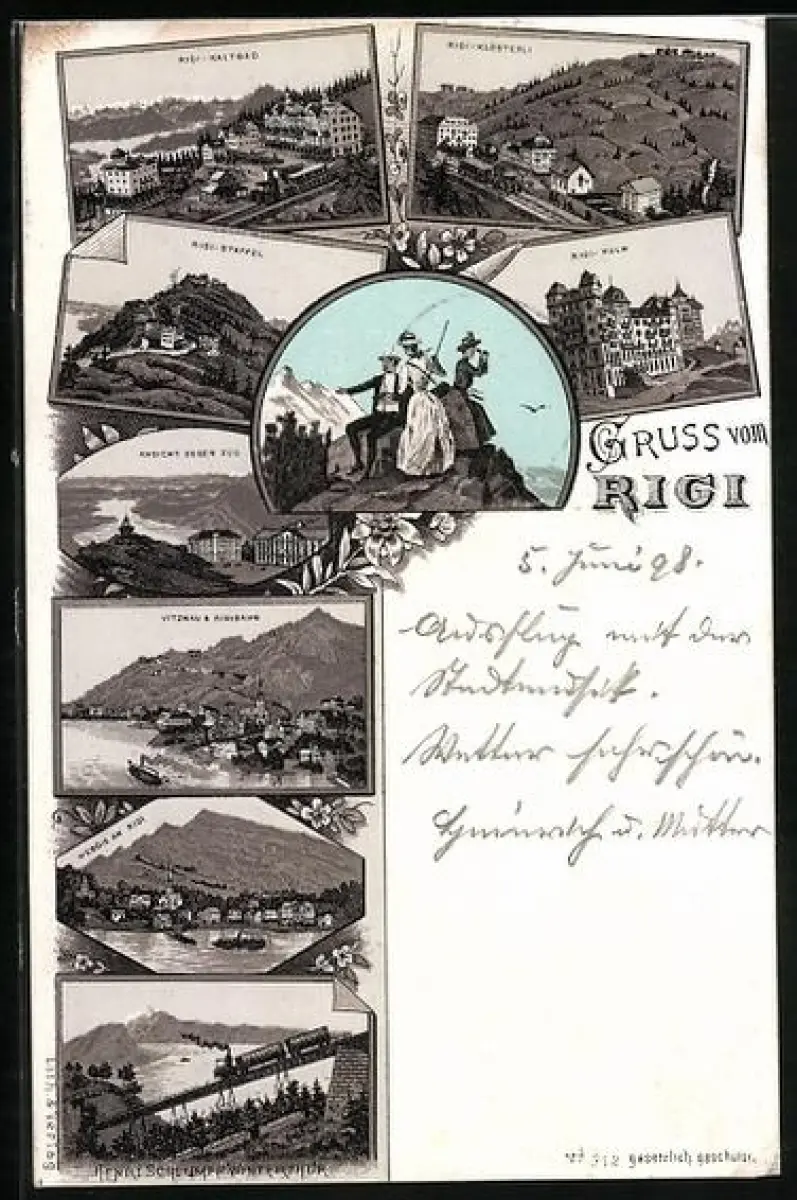 RIGI-KALTBAD
RIGI-KLÖSTERLI
RIGI-STAFFEL
RIGI-KULM
ANSICHT GEGEN ZUG
GRUSS vom
RIGI
5. Juni 98.
Ausflug mit der
Stadtmusik.
Wetter sehr schön.
u. Mutter
VITZNAU & RIGIBAHN
WEGGIS AM RIGI
Lith. & Verlag
HENRI SCHLUMPF WINTERTHUR
№ 212 gesetzlich geschützt.